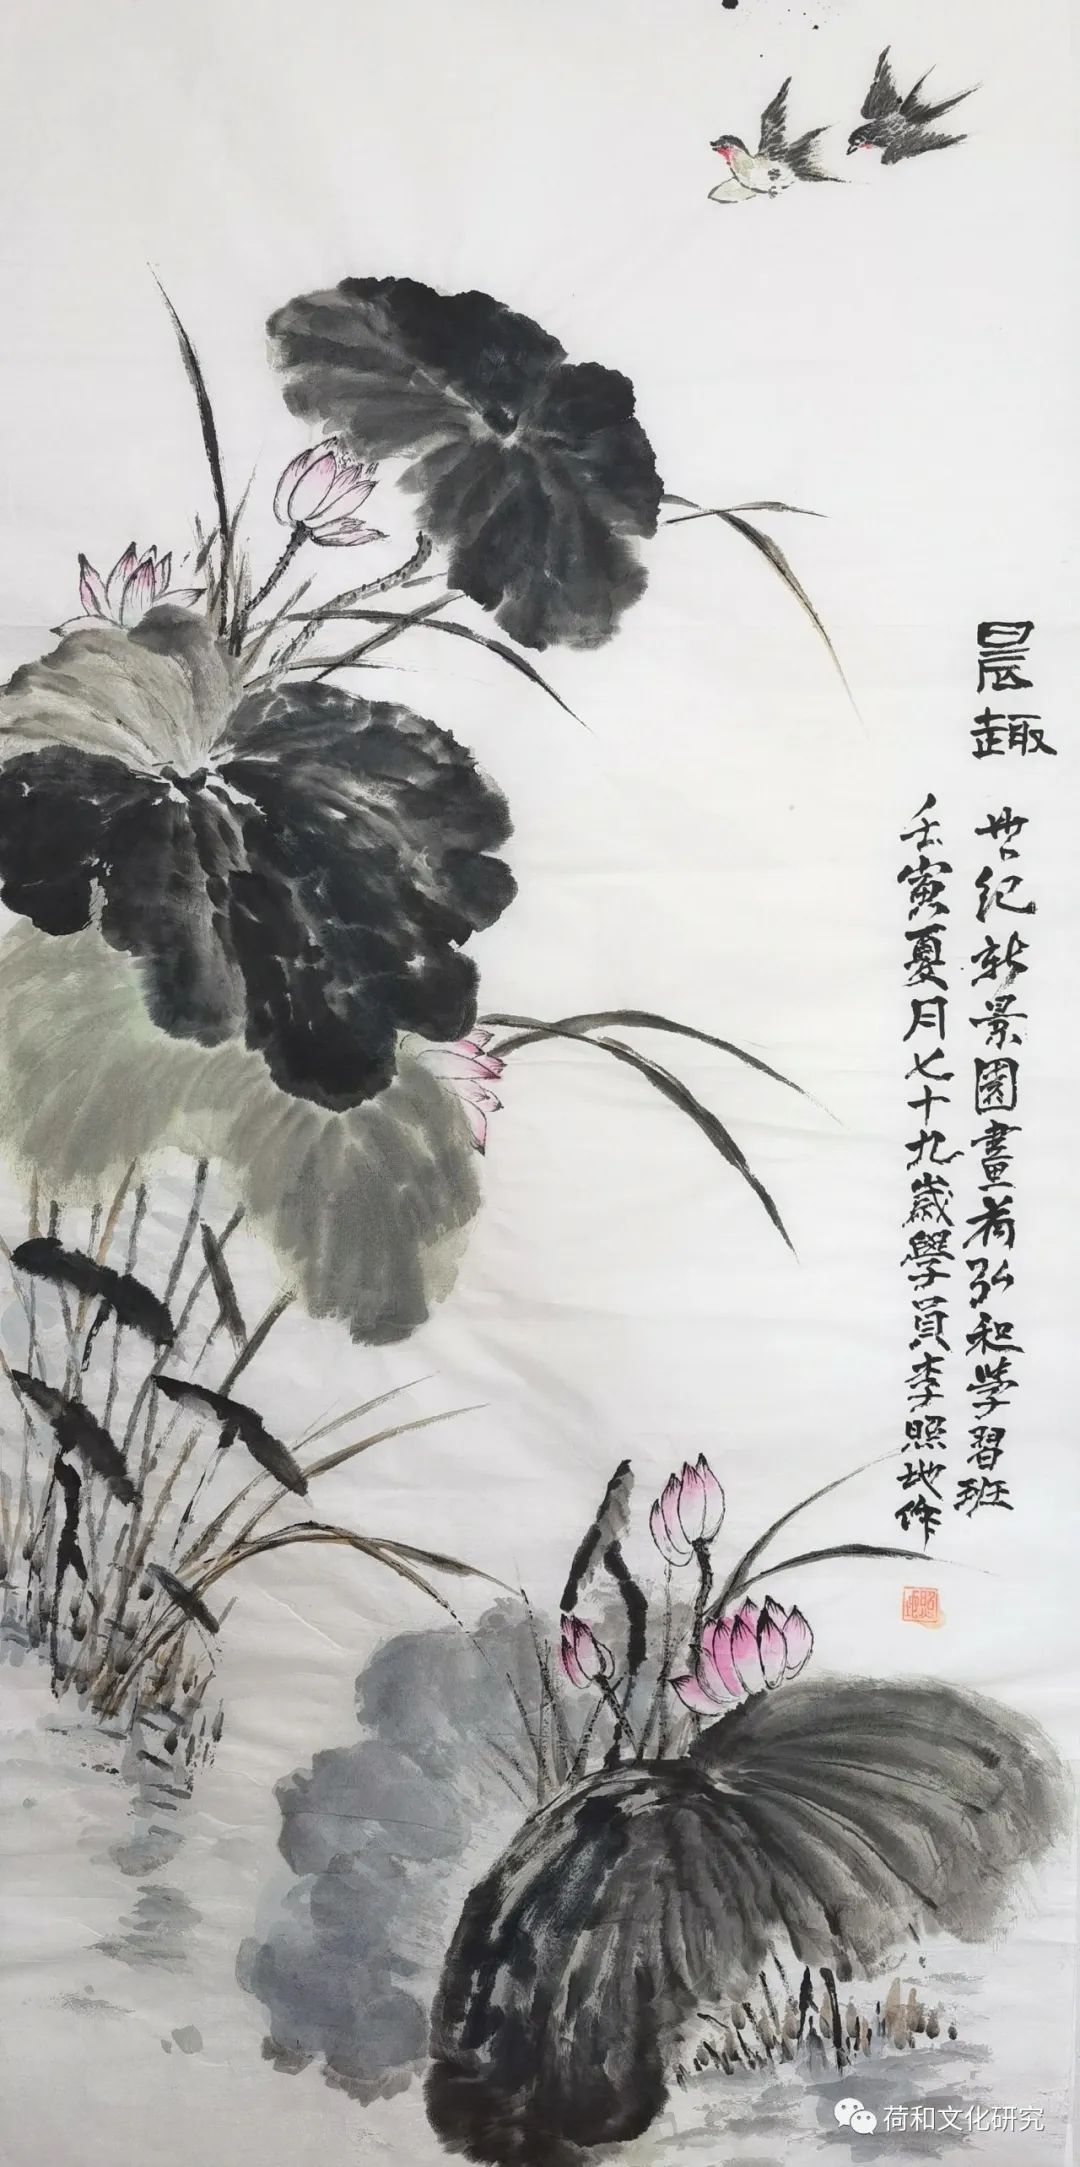 晨趣
世纪新景園畫荷弘和学習班
壬寅夏月七十九歲學員李照地作
照地
荷和文化研究